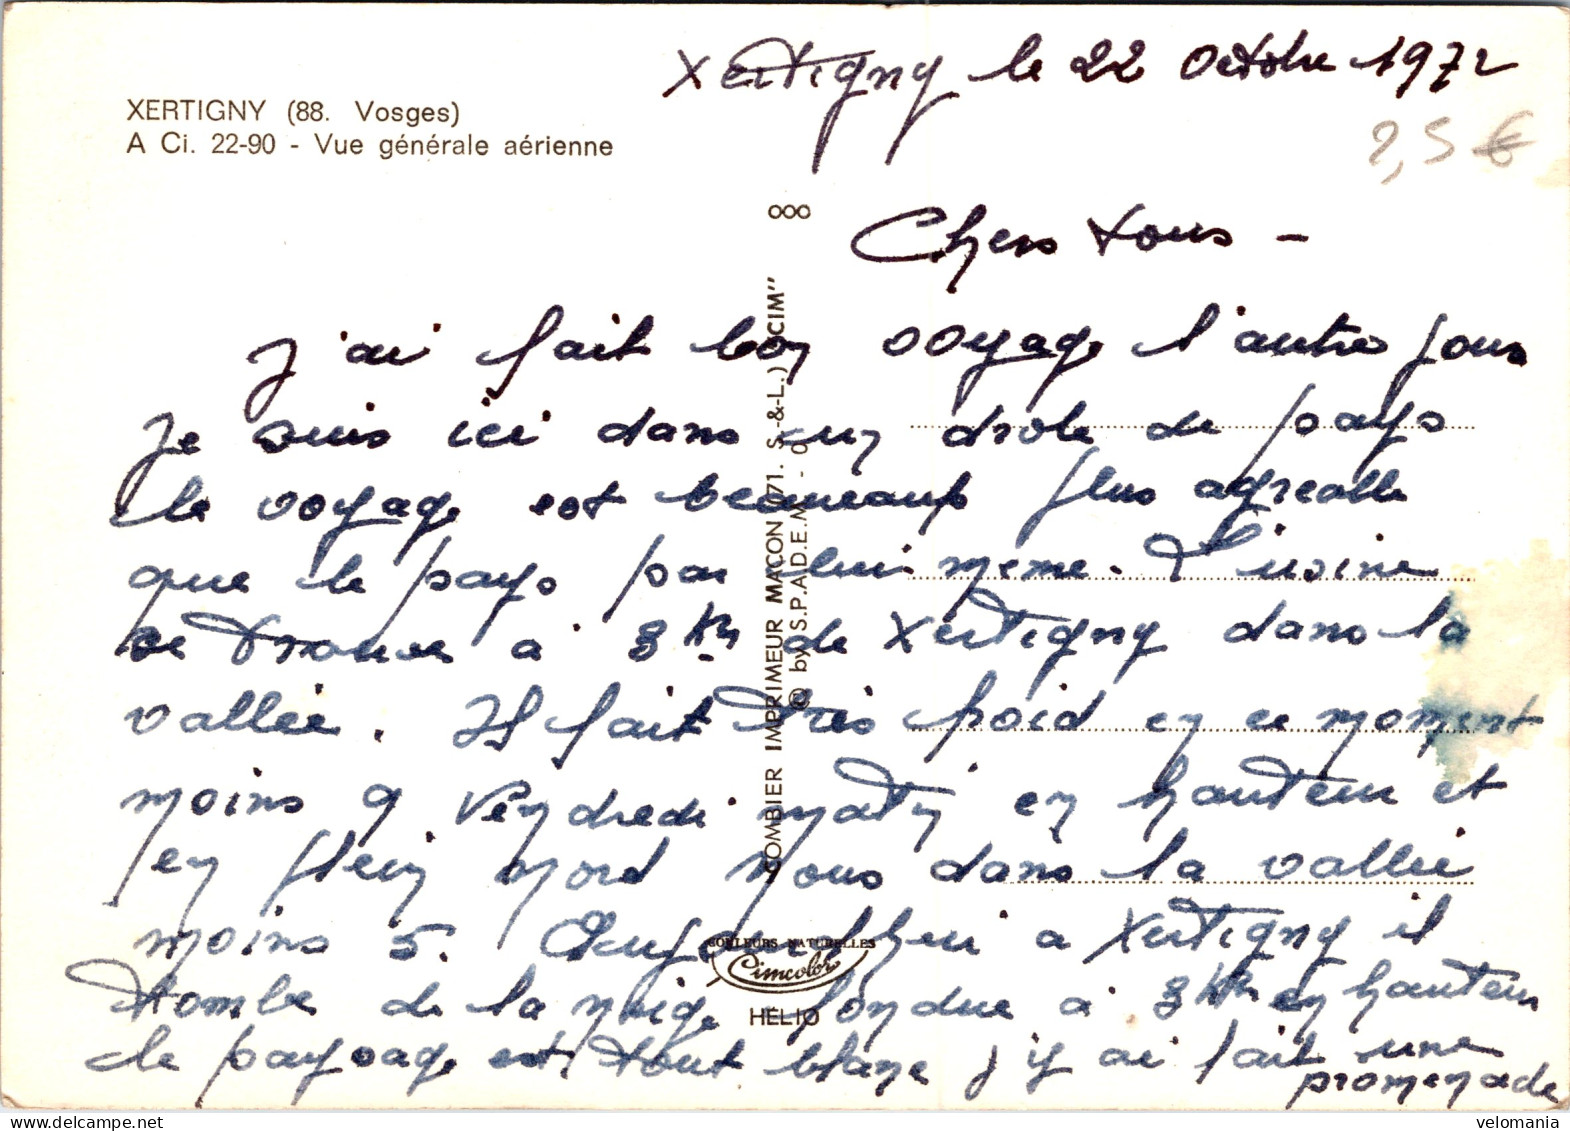 Xertigny le 22 Octobre 1972
XERTIGNY (88. Vosges)
A Ci. 22-90 - Vue générale aérienne
2,5 €
Chers tous -
J'ai fait bon voyage l'autre jour
Je suis ici dans un drole de pays
le voyage est beaucoup plus agreable
que le pays par lui meme. L'usine
se trouve a 3 km de Xertigny dans la
vallée. Il fait très froid en ce moment
moins 9 Vendredi matin en hauteur et
en plein nord nous dans la vallée
moins 5. Aujourd'hui a Xertigny il
tombe de la neige fondue a 3 km en hauteur
le paysage est tout blanc j'y ai fait une
promenade
COMBIER IMPRIMEUR MACON (71. S.-&-L.) "CIM"
© by S.P.A.D.E.M. - 0
000
COULEURS NATURELLES
Cimcolor
HELIO
delcampe.net
velomania